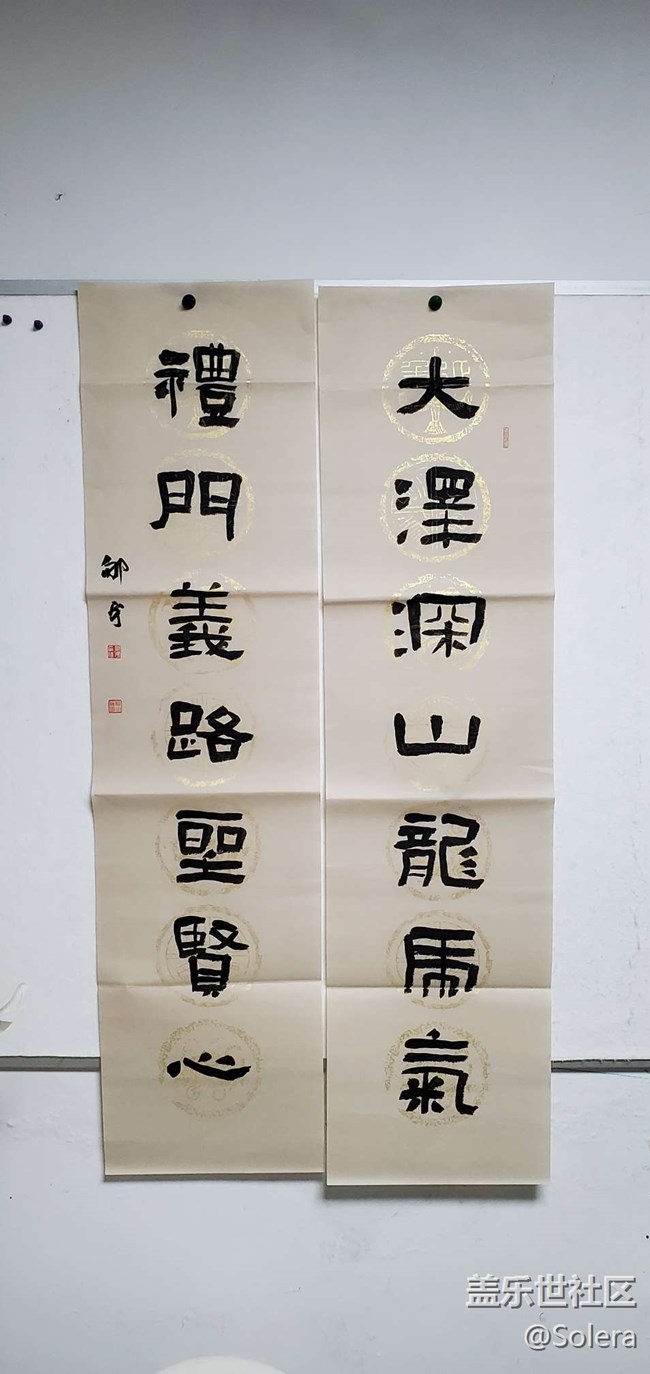 大澤深山龍虎氣
禮門義路聖賢心
盖乐世社区
@Solera